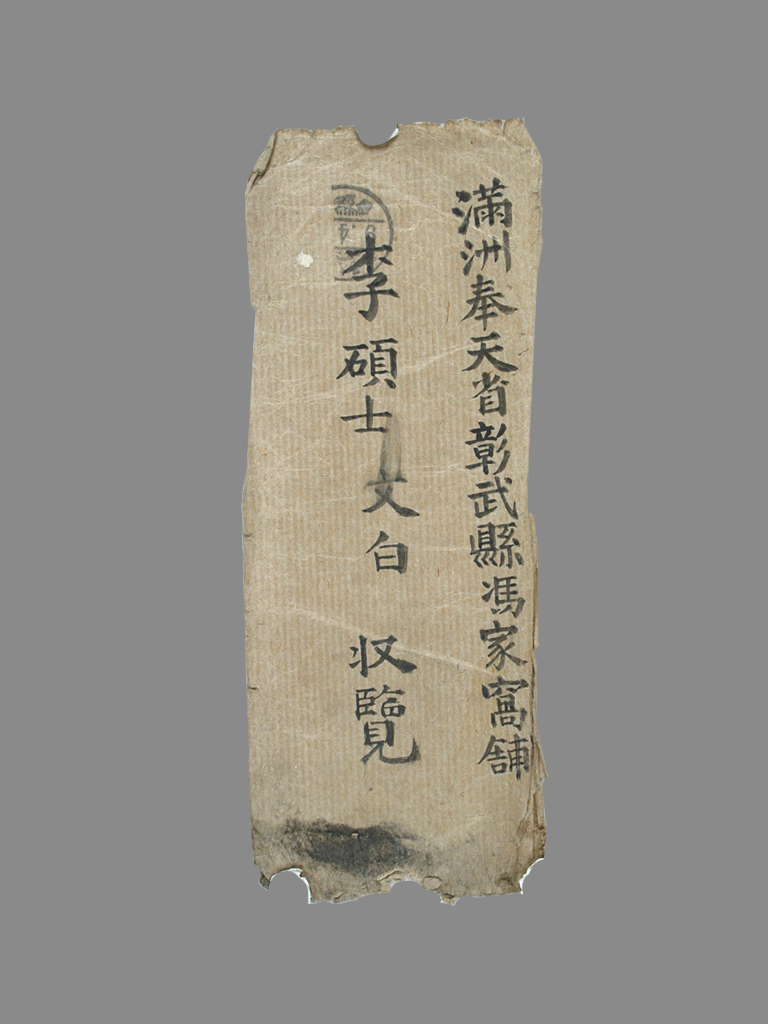 滿洲奉天省彰武縣馮家窩舖
李碩士文白 収覽